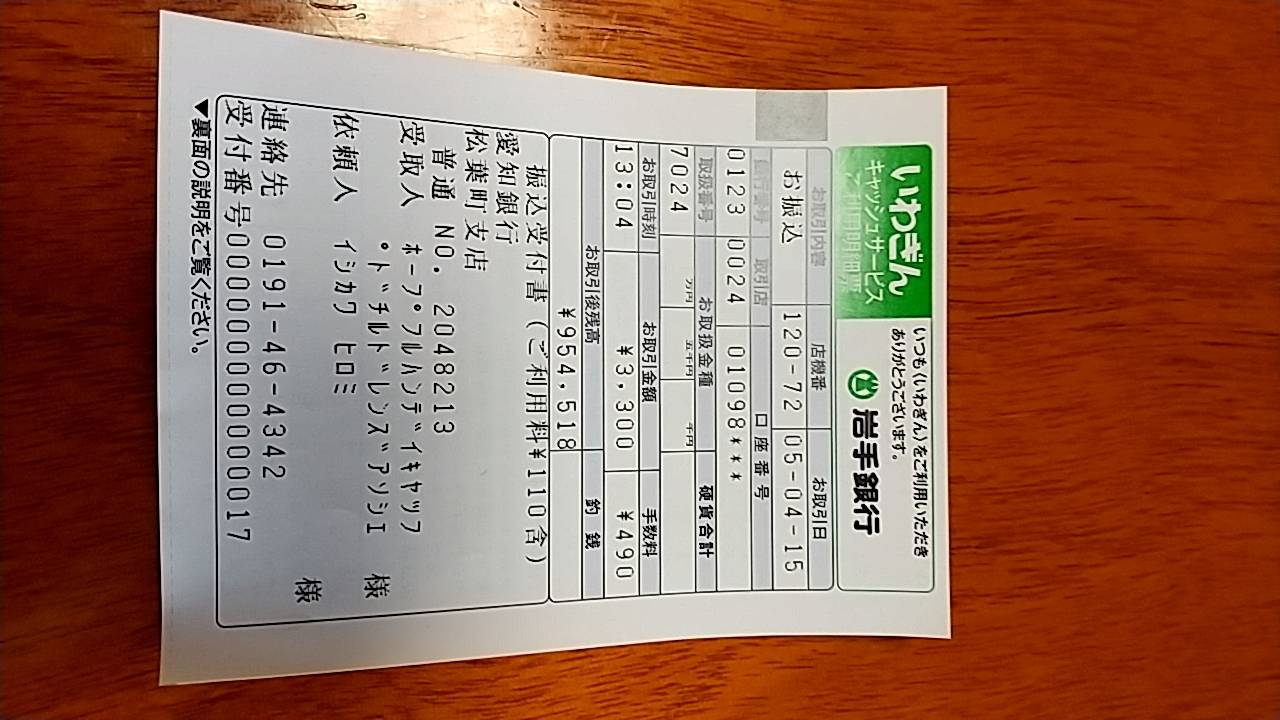 いわぎん
キャッシュサービス
ご利用明細票
いつも〈いわぎん〉をご利用いただき
ありがとうございます。
岩手銀行
お取引内容 店機番 お取引日
お振込 120-72 05-04-15
銀行番号 取引店 口座番号
0123 0024 01098***
取扱番号 お取扱金種 硬貨合計
7024 万円 五千円 千円
お取引時刻 お取引金額 手数料
13:04 ¥3,300 ¥490
お取引後残高 釣銭
¥954,518
振込受付書(ご利用料¥110含)
愛知銀行
松葉町支店
普通 NO. 2048213
受取人 ホープフルハンデイキヤツフ
゜ドチルドレンズアソシエ 様
依頼人 イシカワ ヒロミ
様
連絡先 0191-46-4342
受付番号0000000000000017
▼裏面の説明をご覧ください。